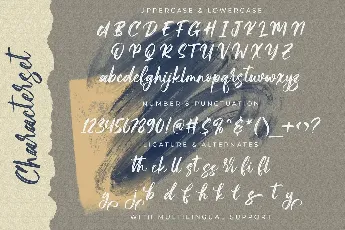 Characterset
UPPERCASE & LOWERCASE
A B C D E F G H I J K L M N
O P Q R S T U V W X Y Z
abcdefghijklmnopqrstuvwxyz
NUMBER & PUNCTUATION
1234567890!@#$%^&*()_+<>?
LIGATURE & ALTERNATES
th ck ll st ss
fi fl
b d f h k l t s t y
WITH MULTILINGUAL SUPPORT